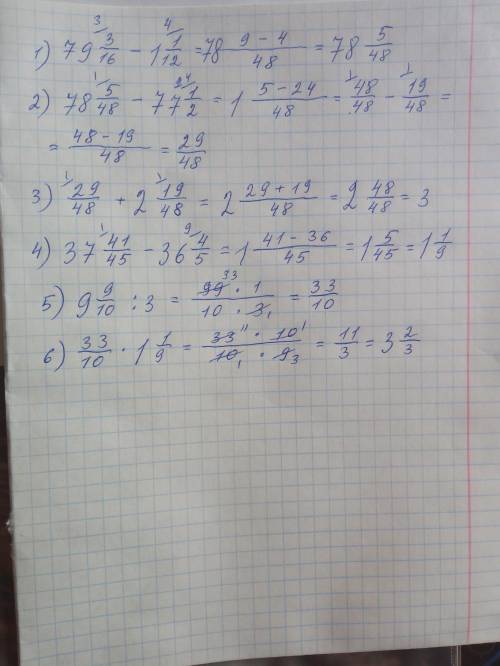 1) 79 3/16 - 1 1/12 = 78 (9-4)/48 = 78 5/48
2) 78 5/48 - 77 1/2 = 1 (5-24)/48 = 48/48 - 19/48 =
= (48-19)/48 = 29/48
3) 29/48 + 2 19/48 = 2 (29+19)/48 = 2 48/48 = 3
4) 37 41/45 - 36 4/5 = 1 (41-36)/45 = 1 5/45 = 1 1/9
5) 9 9/10 : 3 = (99 · 1)/(10 · 3) = 33/10
6) 33/10 · 1 1/9 = (33 · 10)/(10 · 9) = 11/3 = 3 2/3